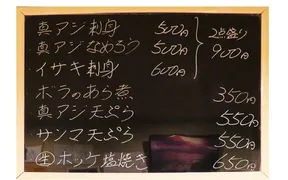 真アジ刺身 500円
真アジなめろう 500円
イサキ刺身 600円
2点盛り
900円
ボラのあら煮 350円
真アジ天ぷら 550円
サンマ天ぷら 550円
㊤ホッケ塩焼き 650円